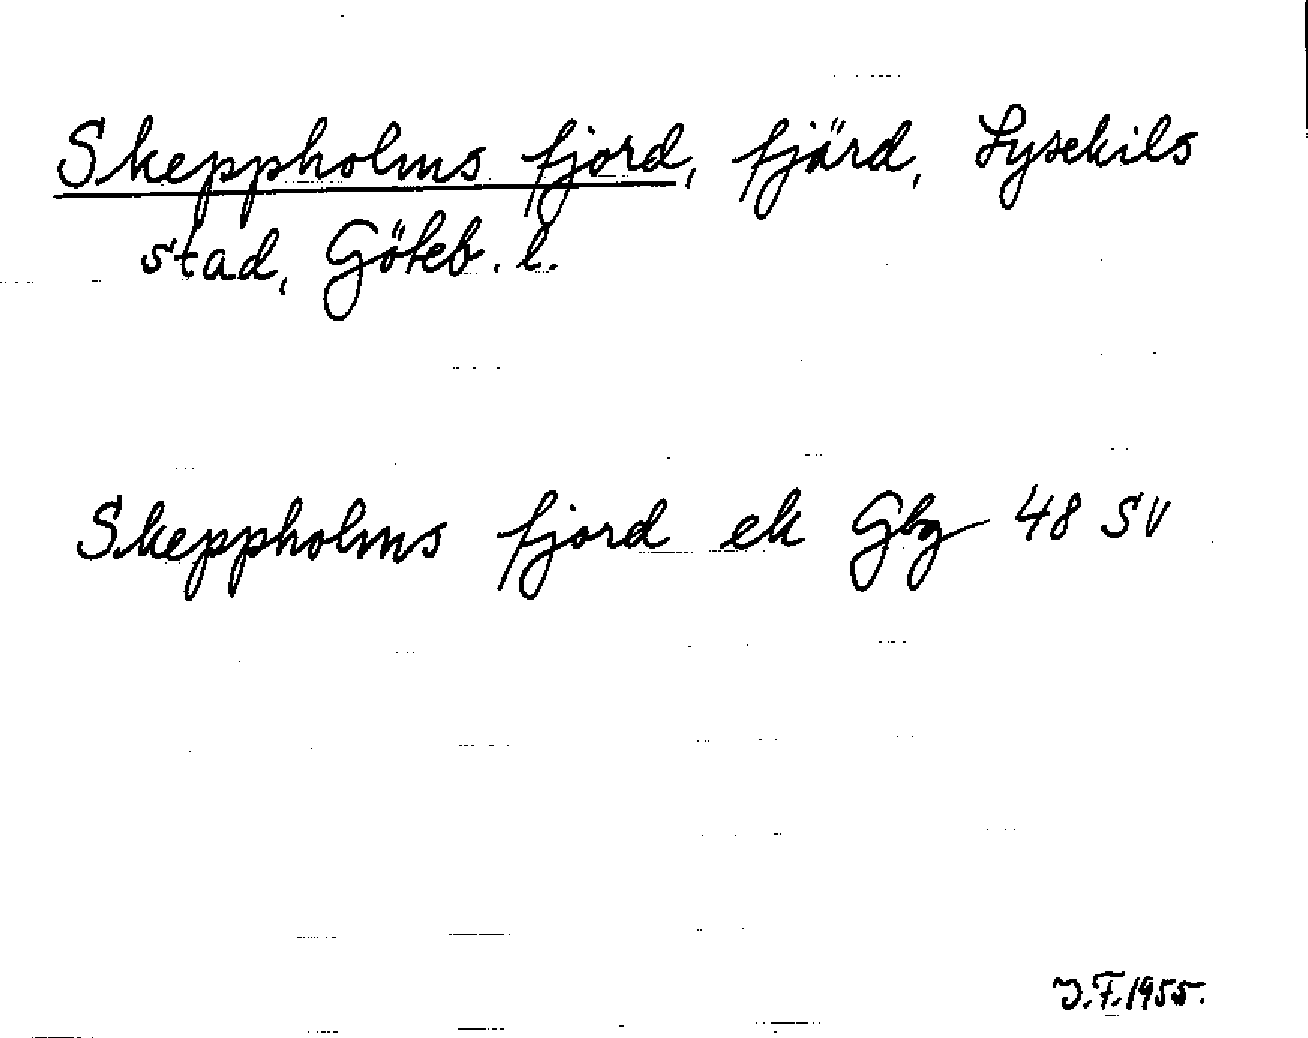 Skeppholms fjord, fjärd, Lysekils
stad, Göteb. l.
Skeppholms fjord ek Gbg 48 SV
J.F. 1955.